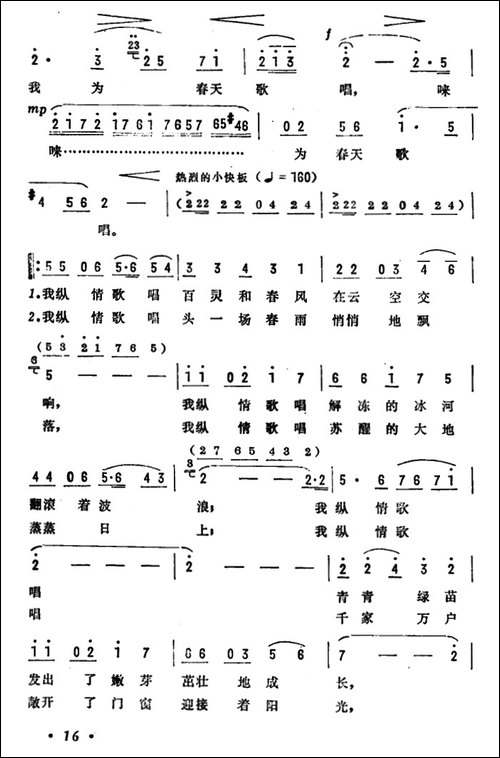 2̇· 3̇ 2̇5 7i 2̇i3̇ 2̇ — 2̇·5
我 为 春天 歌 唱, 唻
mp 2̇172̇ 1761 7657 65#48 02 56 1·5
唻…… 为 春天 歌
热烈的小快板(♩=160)
#4 56 2 — (222 22 04 24 222 22 04 24)
唱。
55 06 5·6 54 3 3 4 3 1 22 03 4 6
1.我纵 情歌 唱 百 灵 和 春 风 在云 空 交
2.我纵 情歌 唱 头 一 场 春 雨 悄悄 地 飘
(53̇ 2̇1 76 5)
5 — — — 11 02 1 7 6 6 1 7 5
响, 我纵 情歌唱 解 冻 的 冰 河
落, 我纵 情歌唱 苏 醒 的 大 地
(27 65 43 2)
44 06 5·6 43 2 — — 2·2 5· 6 7 6 7 1
翻滚 着 波 浪; 我 纵 情歌
蒸蒸 日 上; 我 纵 情歌
2̇ — — — 2̇ — — — 2̇ 2̇ 4̇ 3̇ 2̇
唱 青 青 绿 苗
唱 千 家 万 户
11 02 1 7 66 03 5 6 7 — — 2̇
发出 了 嫩 芽 茁壮 地 成 长,
敞开 了 门 窗 迎接 着 阳 光,
· 16 ·